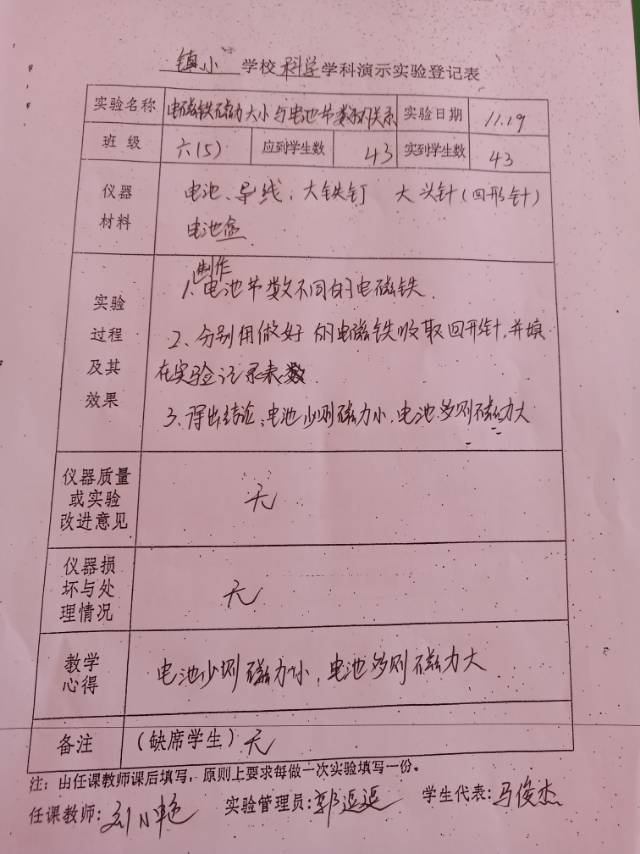 镇小 学校 科学 学科演示实验登记表
实验名称 电磁铁磁力大小与电池节数的关系 实验日期 11.19
班 级 六(5) 应到学生数 43 实到学生数 43
仪器材料 电池、导线、大铁钉 大头针(回形针)
电池盒
实验过程及其效果
1、制作电池节数不同的电磁铁.
2、分别用做好的电磁铁收取回形针,并填
在实验记录表
3、得出结论:电池少则磁力小,电池多则磁力大
仪器质量或实验改进意见 无
仪器损坏与处理情况 无
教学心得 电池少则磁力小,电池多则磁力大
备注 (缺席学生)无
注:由任课教师课后填写,原则上要求每做一次实验填写一份。
任课教师: 实验管理员:郭延延 学生代表:马俊杰